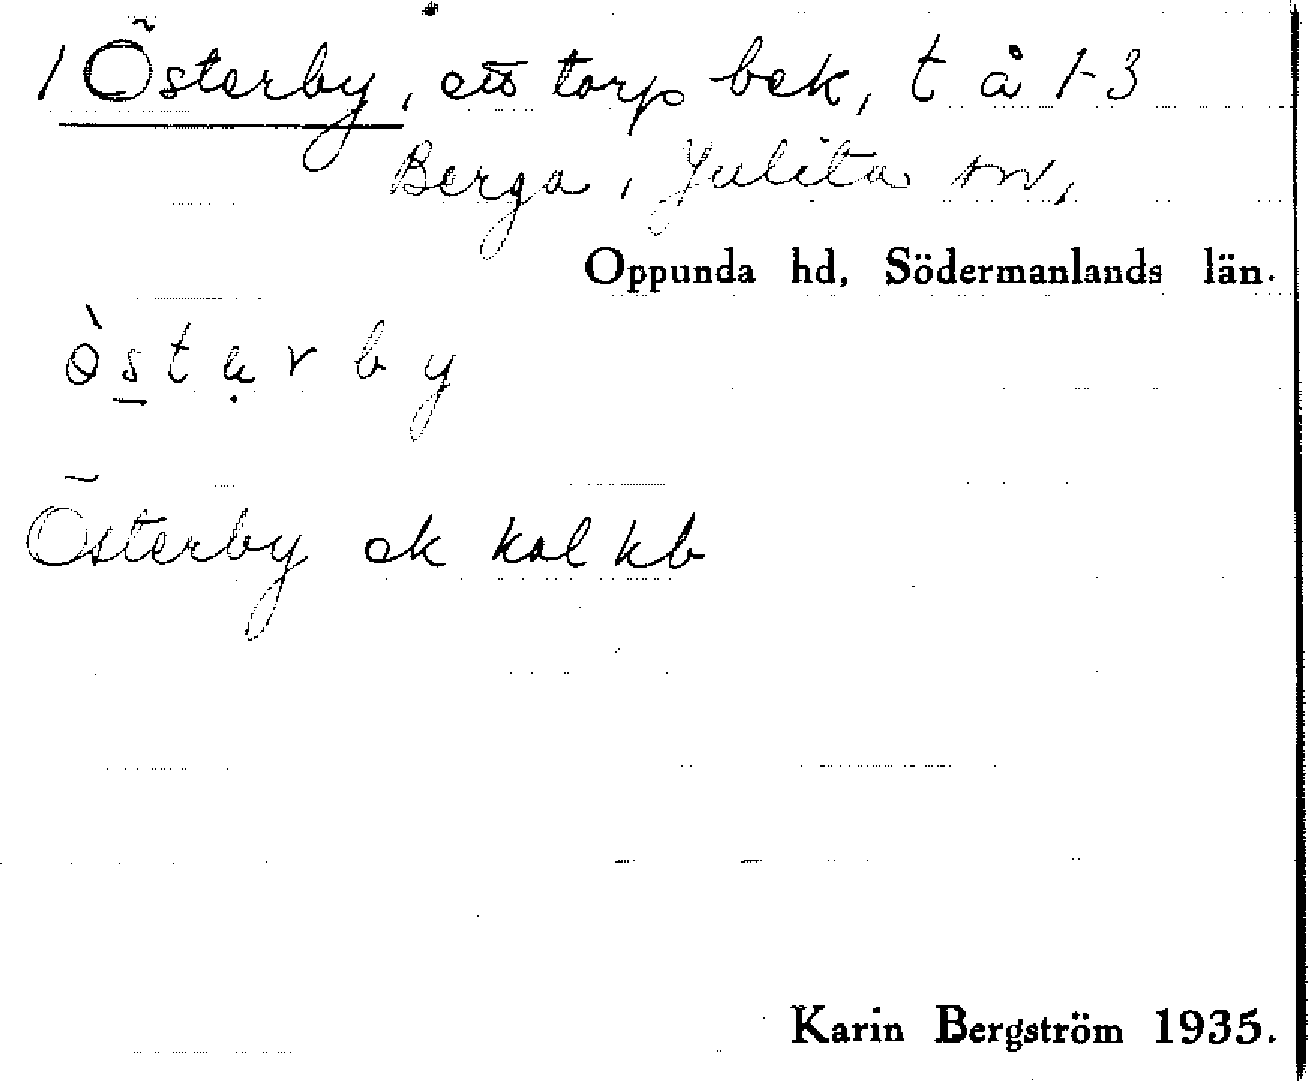 1 Österby, ett torp bek, t å 1-3
Berga, Julita sn,
Oppunda hd, Södermanlands län.
Österby ek kol kb
Karin Bergström 1935.